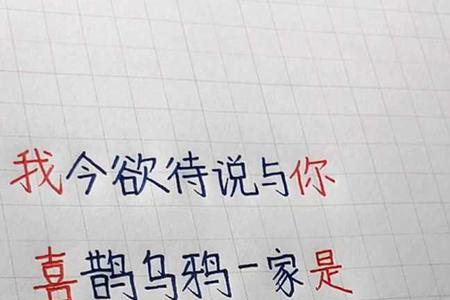 我今欲待说与你
喜鹊乌鸦一家是